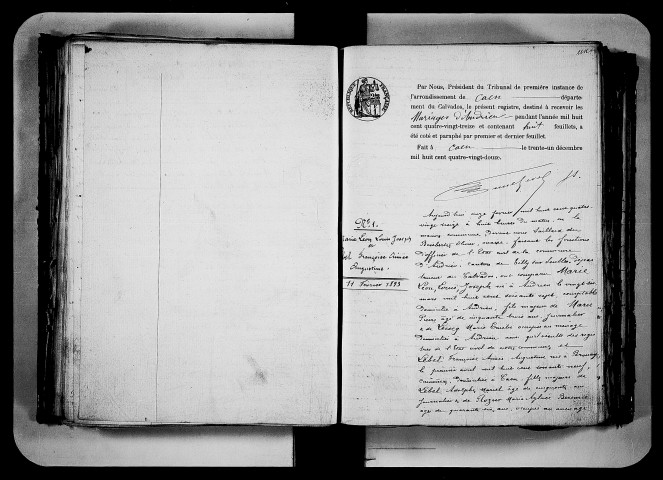 Par Nous, Président du Tribunal de première instance de
l'arrondissement de Caen départe-
ment du Calvados, le présent registre, destiné à recevoir les
Mariages d'Audrieu pendant l'année mil huit
cent quatre-vingt-treize et contenant huit feuillets, a
été coté et paraphé par premier et dernier feuillet.
Fait à Caen le trente-un décembre
mil huit cent quatre-vingt-douze.
N° 1.
Marie Léon Louis Joseph
et
Lebel Françoise Aimée
Augustine.
11 Février 1893
Aujourd'hui onze février mil huit cent quatre-
vingt treize à huit heures du matin, en la
maison commune devant nous
maire, faisant les fonctions
d'officier de l'Etat civil de la commune
d'Audrieu, canton de Tilly-sur-Seulles, dépar-
tement du Calvados, ont comparu Marie
Léon, Louis, Joseph, né à Audrieu le vingt-six
mars mil huit cent soixante sept, comptable
domicilié à Audrieu, fils majeur de Marie
Pierre âgé de cinquante trois ans, journalier
& de Marie occupée au ménage
domiciliés à Audrieu ainsi qu'il résulte des regis-
tres de l'Etat civil de notre commune, et
Lebel Françoise Aimée Augustine née à
le premier août mil huit cent soixante neuf,
cuisinière, domiciliée à Caen, fille majeure de
Lebel Adolphe âgé de cinquante ans
journalier & de Marie
âgée de quarante six ans, occupée au ménage